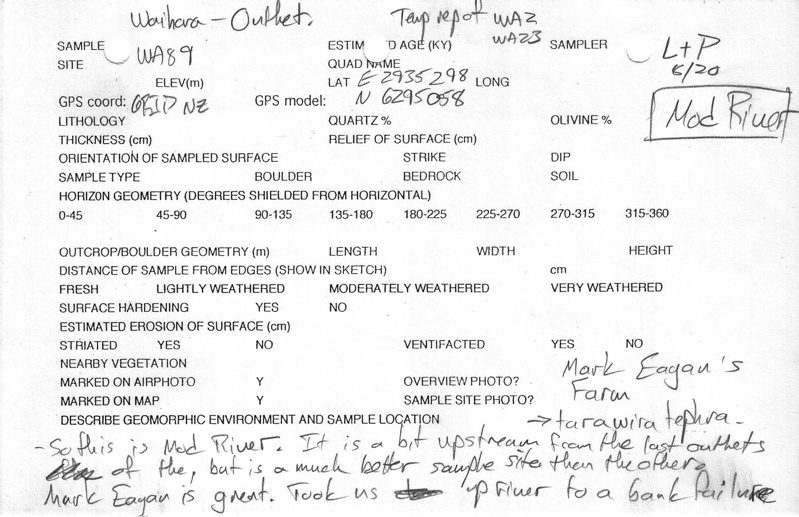 Waihara - Outhet. Temp rep of WA2
WA23
SAMPLE WA89 ESTIM D AGE (KY) SAMPLER L+P
SITE QUAD NAME 5/20
ELEV(m) LAT E 2935298 LONG
GPS coord: GRID NZ GPS model: N 6295058
LITHOLOGY QUARTZ % OLIVINE % Mod River
THICKNESS (cm) RELIEF OF SURFACE (cm)
ORIENTATION OF SAMPLED SURFACE STRIKE DIP
SAMPLE TYPE BOULDER BEDROCK SOIL
HORIZON GEOMETRY (DEGREES SHIELDED FROM HORIZONTAL)
0-45 45-90 90-135 135-180 180-225 225-270 270-315 315-360
OUTCROP/BOULDER GEOMETRY (m) LENGTH WIDTH HEIGHT
DISTANCE OF SAMPLE FROM EDGES (SHOW IN SKETCH) cm
FRESH LIGHTLY WEATHERED MODERATELY WEATHERED VERY WEATHERED
SURFACE HARDENING YES NO
ESTIMATED EROSION OF SURFACE (cm)
STRIATED YES NO VENTIFACTED YES NO
NEARBY VEGETATION Mark Eagan's
MARKED ON AIRPHOTO Y OVERVIEW PHOTO? Farm
MARKED ON MAP Y SAMPLE SITE PHOTO?
DESCRIBE GEOMORPHIC ENVIRONMENT AND SAMPLE LOCATION → tarawira tephra.
- So this is Mod River. It is a bit upstream from the last outhets
of the, but is a much better sample site then the others
Mark Eagan is great. Took us up river to a bank failure